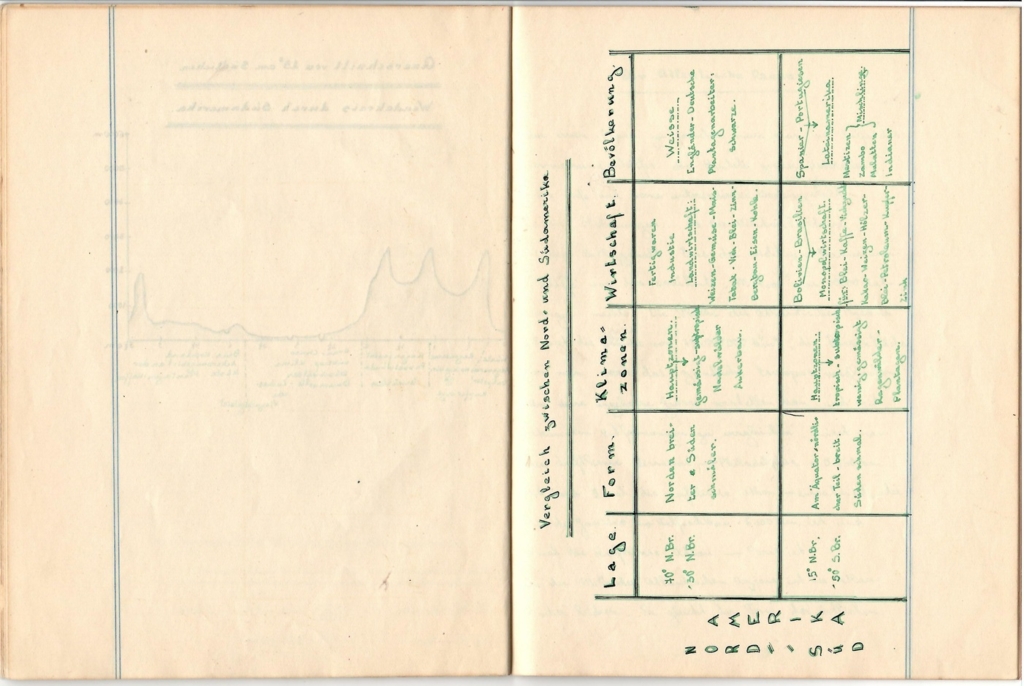 Vergleich zwischen Nord- und Südamerika
Lage. Form. Klima-
zonen. Wirtschaft. Bevölkerung.
NORD- AMERIKA
70° N.Br.
-30° N.Br.
Norden brei-
ter e Süden
schmäler.
Hauptzonen.
gemässigt - subtropisch
Nadelwälder
Ackerbau.
Fertigwaren
Industie
Landwirtschaft:
Weizen-Gemüse-Mais-
Tabak-Vieh-Blei-Zink-
Bergbau-Eisen-Kohle.
Weisse
Engländer-Deutsche
Plantagenarbeiter.
Schwarze.
SÜD
15° N.Br.
-50° S.Br.
Am Äquator-nördli-
cher Teil-breit.
Süden schmal.
Hauptzonen.
tropisch-subtropisch
wenig gemässigt
Regenwälder-
Plantagen.
Bolivien-Brasilien
Monopolwirtschaft.
Blei-Kaffe-
Weizen-Hölzer-
Blei-Petroleum-Kupfer-
Spanier-Portugiesen
Lateinamerika
Mestizen
Zambo } Mischlinge
Mulatten
Indianer
Querschnitt von 25° am Südlichen
Wendekreis durch Südamerika